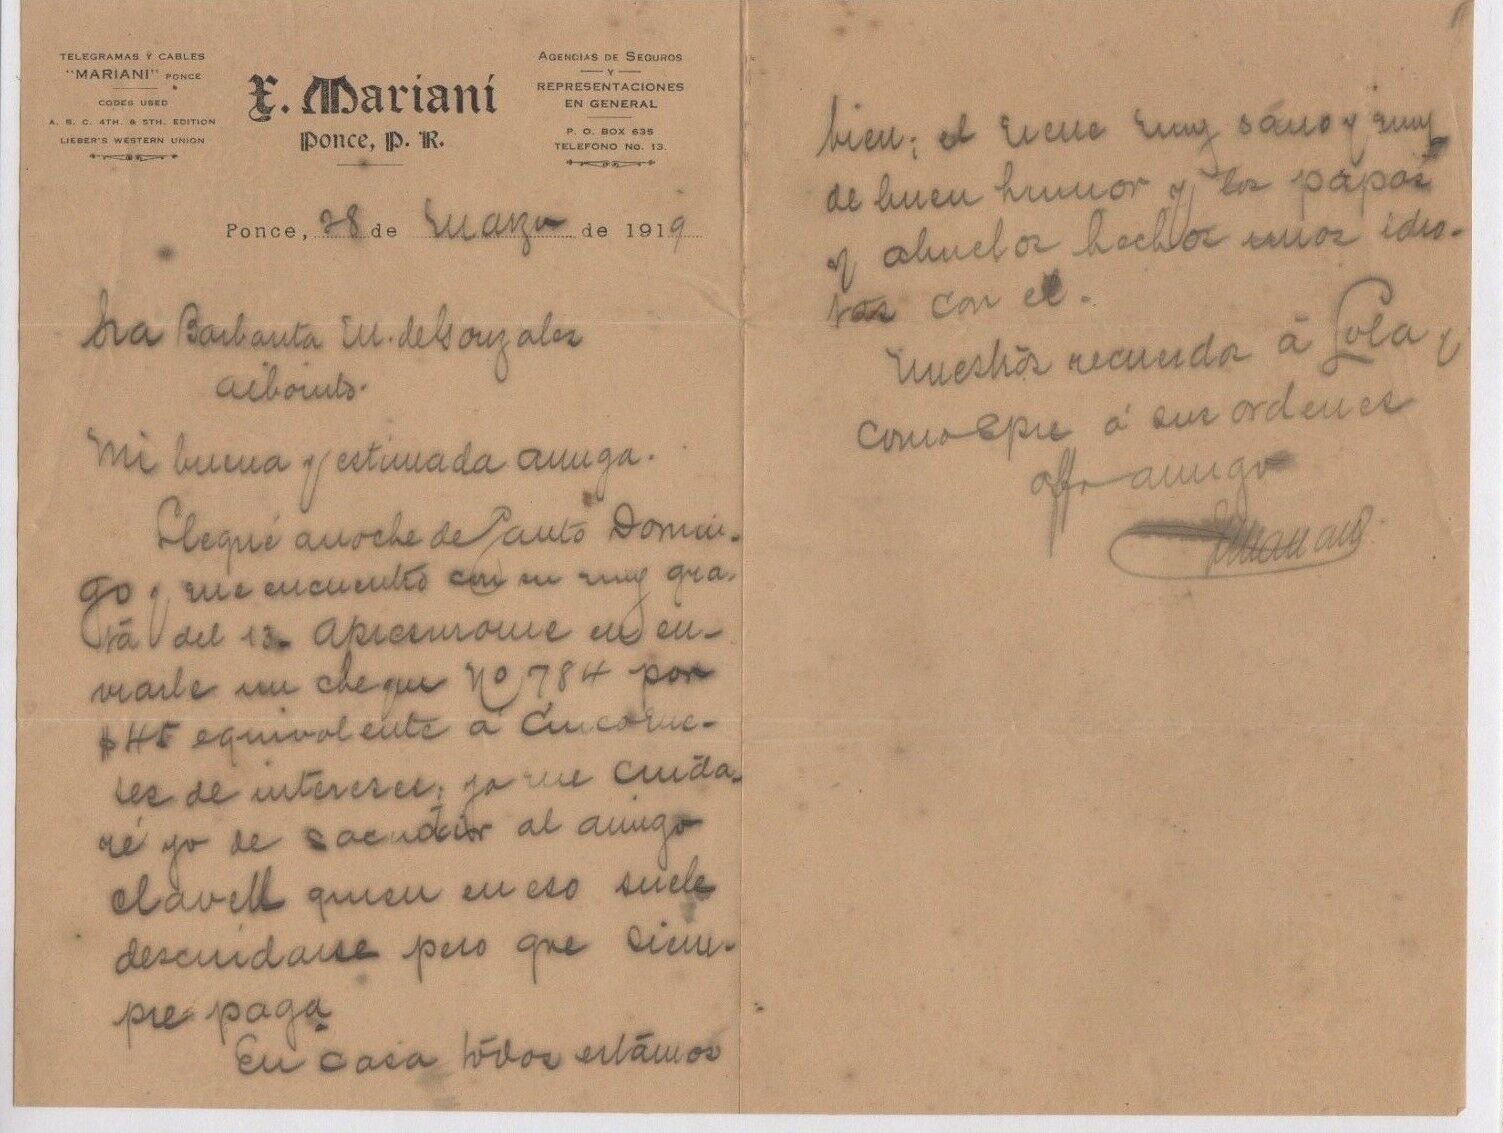 TELEGRAMAS Y CABLES
"MARIANI" PONCE
CODES USED
A. B. C. 4TH. & 5TH. EDITION
LIEBER'S WESTERN UNION
X. Mariani
Ponce, P. R.
AGENCIAS DE SEGUROS
Y
REPRESENTACIONES
EN GENERAL
P. O. BOX 635
TELEFONO NO. 13.
Ponce, 28 de Marzo de 1919
Sra Barbarita M. de Gonzalez
Aibonito.
Mi buena y estimada amiga.
Llegué anoche de Santo Domin-
go y me encuentro con su muy gra-
ta del 13. Apresurome en en-
viarle un cheque No 784 por
$45 equivalente á cinco me-
ses de intereses; ya me cuida-
ré yo de sacudir al amigo
Clavell quien en eso suele
descuidarse pero que siem-
pre paga
En casa todos estámos
bien; el nene muy sáno y muy
de buen humor y los papás
y abuelos hechos unos idio-
tas con el.
Nuestros recuerdos á Lola y
como spre á sus ordenes
affo amigo